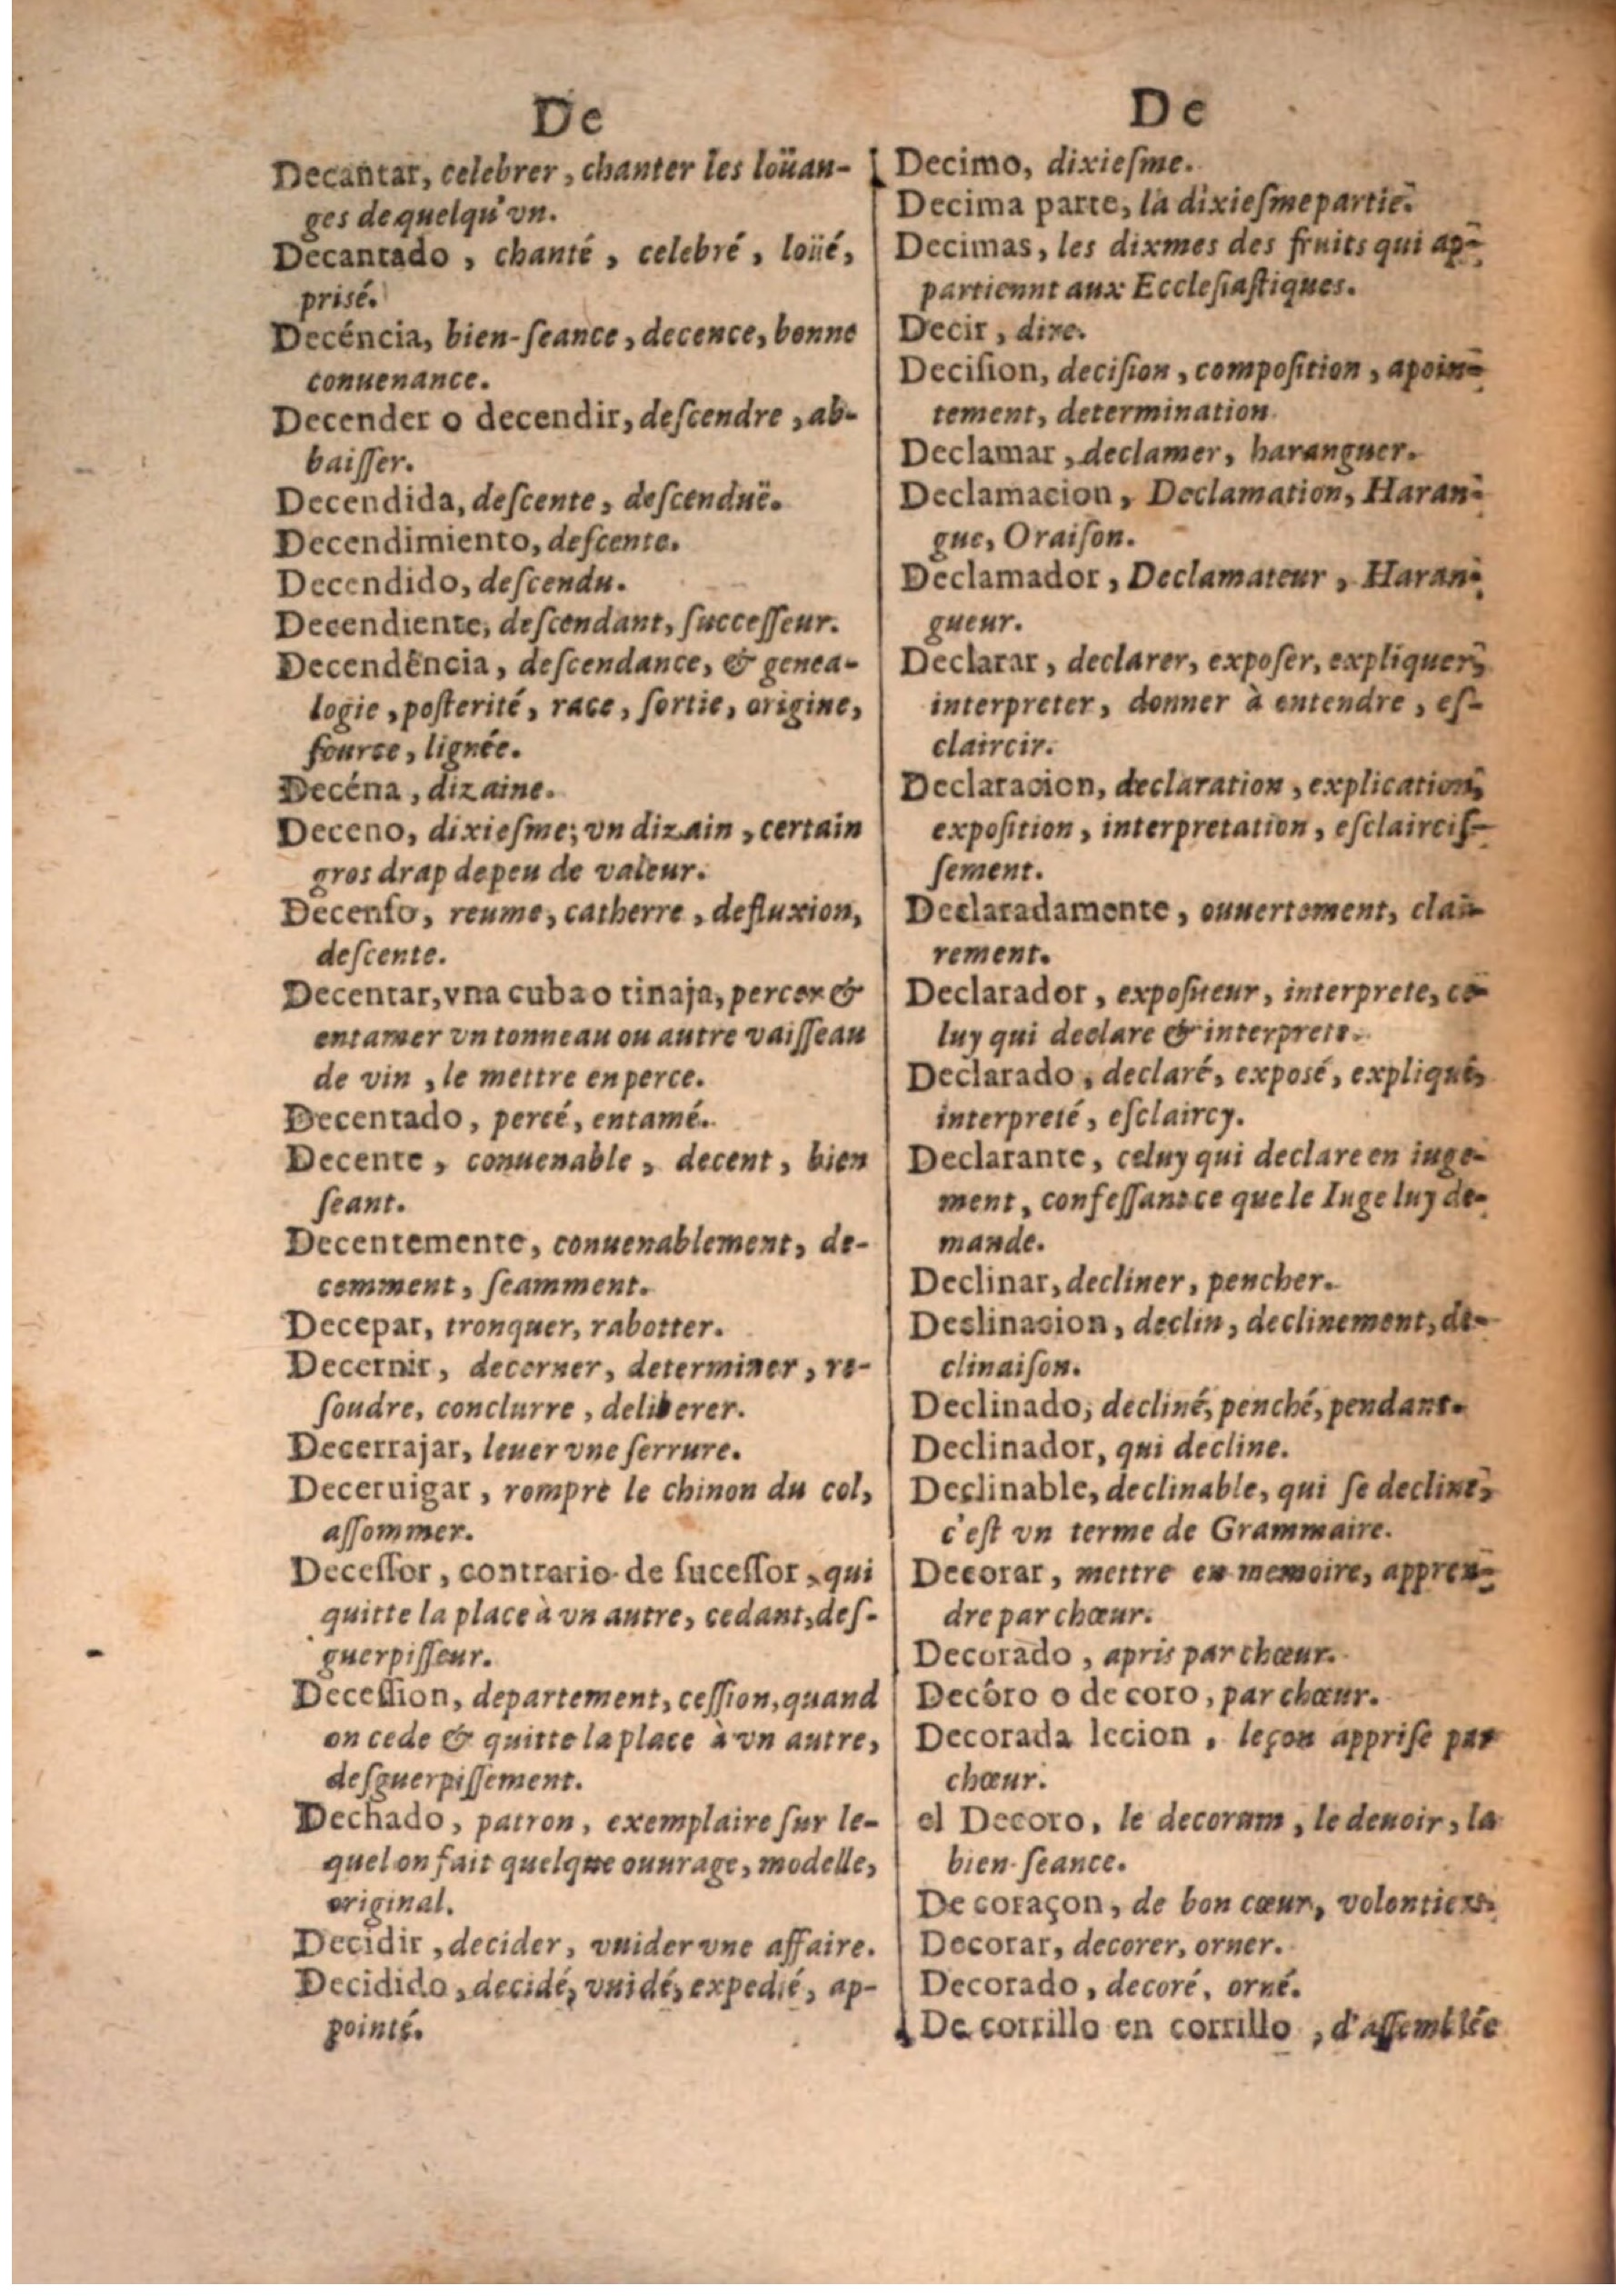 De
Decantar, celebrer, chanter les loüan-
ges de quelqu'vn.
Decantado, chanté, celebré, loüé,
prisé.
Decéncia, bien-ſeance, decence, bonne
conuenance.
Decender o decendir, deſcendre, ab-
baiſſer.
Decendida, deſcente, deſcenduë.
Decendimiento, deſcente.
Decendido, deſcendu.
Decendiente, deſcendant, ſucceſſeur.
Decendéncia, deſcendance, & genea-
logie, poſterité, race, ſortie, origine,
ſource, lignée.
Decéna, dizaine.
Deceno, dixieſme; vn dizain, certain
gros drap de peu de valeur.
Decenſo, reume, catherre, defluxion,
deſcente.
Decentar, vna cuba o tinaja, percer &
entamer vn tonneau ou autre vaiſſeau
de vin, le mettre en perce.
Decentado, percé, entamé.
Decente, conuenable, decent, bien
ſeant.
Decentemente, conuenablement, de-
cemment, ſeamment.
Decepar, tronquer, rabotter.
Decernir, decerner, determiner, re-
ſoudre, conclurre, deliberer.
Decerrajar, leuer vne ſerrure.
Deceruigar, rompre le chinon du col,
aſſommer.
Deceſſor, contrario de ſuceſſor, qui
quitte la place à vn autre, cedant, deſ-
guerpiſſeur.
Deceſſion, departement, ceſſion, quand
on cede & quitte la place à vn autre,
deſguerpiſſement.
Dechado, patron, exemplaire ſur le-
quel on fait quelque ouurage, modelle,
original.
Decidir, decider, vuider vne affaire.
Decidido, decidé, vuidé, expedié, ap-
pointé.
De
Decimo, dixieſme.
Decima parte, la dixieſme partie.
Decimas, les dixmes des fruits qui ap-
partiennt aux Eccleſiaſtiques.
Decir, dire.
Deciſion, deciſion, compoſition, apoin-
tement, determination.
Declamar, declamer, haranguer.
Declamacion, Declamation, Haran-
gue, Oraiſon.
Declamador, Declamateur, Haran-
gueur.
Declarar, declarer, expoſer, expliquer,
interpreter, donner à entendre, eſ-
claircir.
Declaracion, declaration, explication,
expoſition, interpretation, eſclairciſ-
ſement.
Declaradamente, ouuertement, clai-
rement.
Declarador, expoſiteur, interprete, ce-
luy qui declare & interprete.
Declarado, declaré, expoſé, expliqué,
interpreté, eſclaircy.
Declarante, celuy qui declare en iuge-
ment, confeſſant ce que le Iuge luy de-
mande.
Declinar, decliner, pencher.
Declinacion, declin, declinement, de-
clinaiſon.
Declinado, decliné, penché, pendant.
Declinador, qui decline.
Declinable, declinable, qui ſe decline,
c'eſt vn terme de Grammaire.
Decorar, mettre en memoire, appren-
dre par chœur.
Decorado, apris par chœur.
Decôro o de coro, par chœur.
Decorada lecion, leçon appriſe par
chœur.
el Decoro, le decorum, le deuoir, la
bien-ſeance.
De coraçon, de bon cœur, volontiers.
Decorar, decorer, orner.
Decorado, decoré, orné.
De corrillo en corrillo, d'aſſemblée